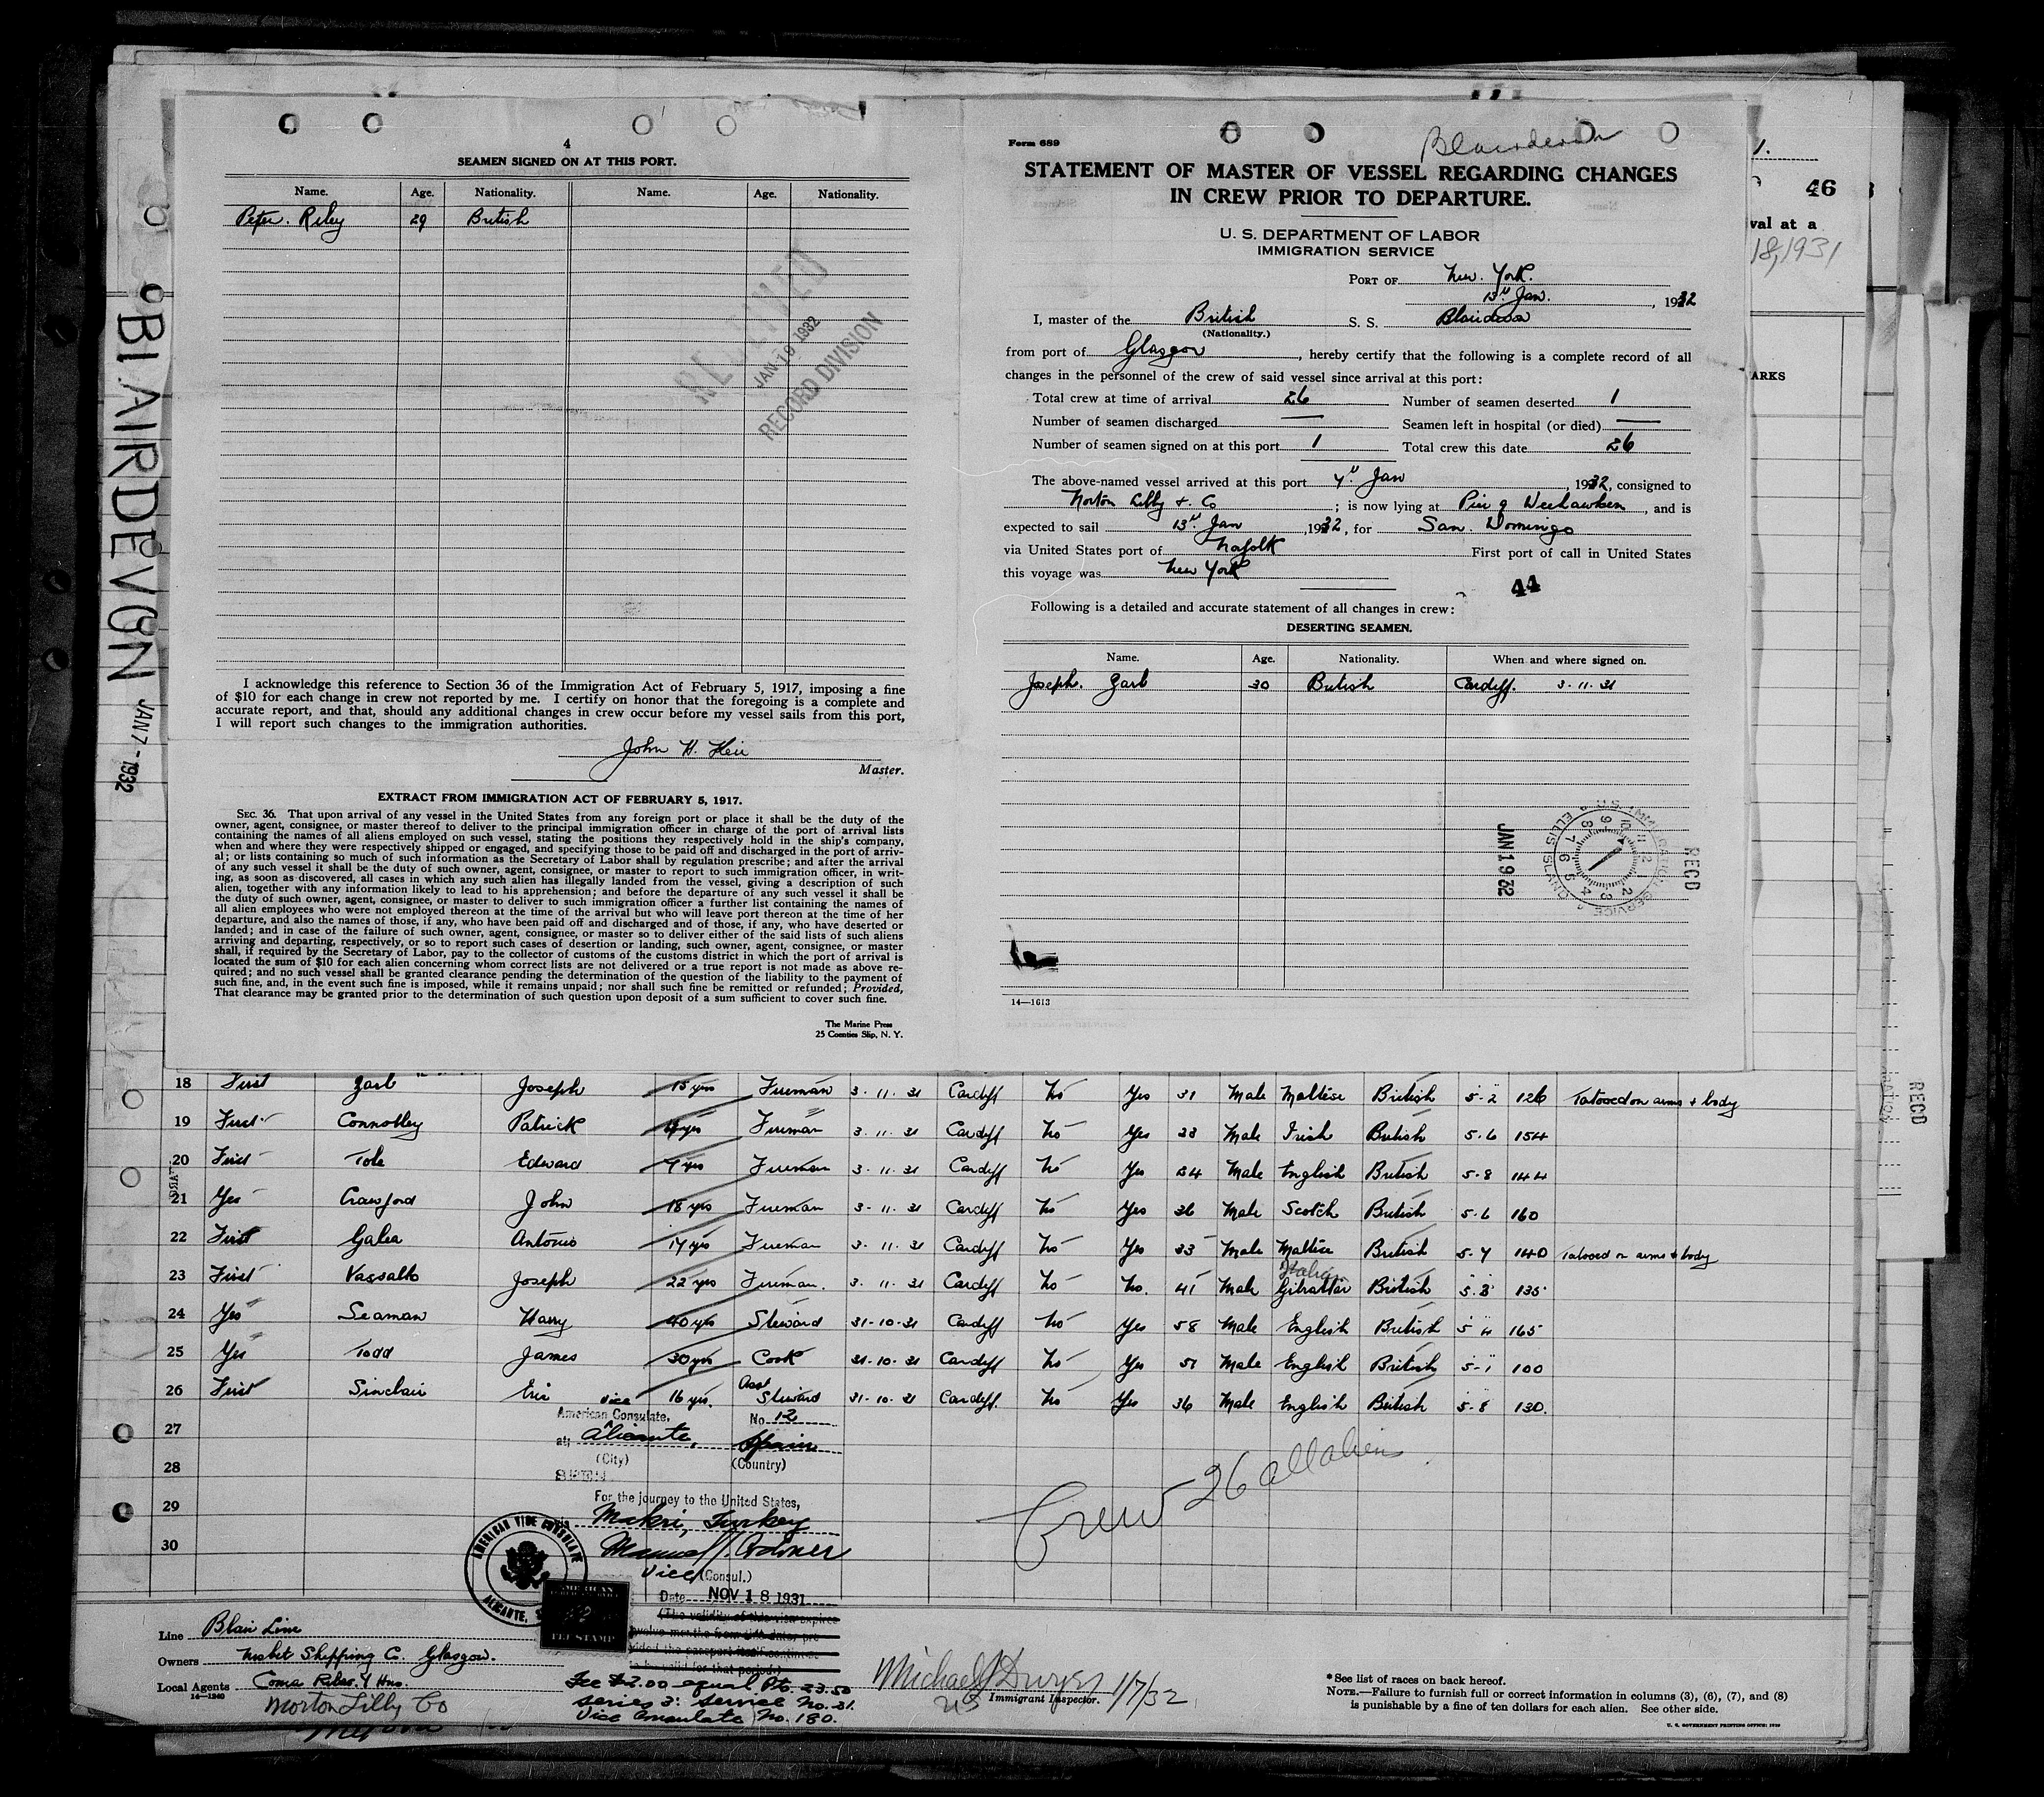 4
SEAMEN SIGNED ON AT THIS PORT.
Name. Age. Nationality. Name. Age. Nationality.
Peter. Riley 29 British
RECORD DIVISION
I acknowledge this reference to Section 36 of the Immigration Act of February 5, 1917, imposing a fine
of $10 for each change in crew not reported by me. I certify on honor that the foregoing is a complete and
accurate report, and that, should any additional changes in crew occur before my vessel sails from this port,
I will report such changes to the immigration authorities.
John H.
Master.
EXTRACT FROM IMMIGRATION ACT OF FEBRUARY 5, 1917.
SEC. 36. That upon arrival of any vessel in the United States from any foreign port or place it shall be the duty of the
owner, agent, consignee, or master thereof to deliver to the principal immigration officer in charge of the port of arrival lists
containing the names of all aliens employed on such vessel, stating the positions they respectively hold in the ship's company,
when and where they were respectively shipped or engaged, and specifying those to be paid off and discharged in the port of arriv-
al; or lists containing so much of such information as the Secretary of Labor shall by regulation prescribe; and after the arrival
of any such vessel it shall be the duty of such owner, agent, consignee, or master to report to such immigration officer, in writ-
ing, as soon as discovered, all cases in which any such alien has illegally landed from the vessel, giving a description of such
alien, together with any information likely to lead to his apprehension; and before the departure of any such vessel it shall be
the duty of such owner, agent, consignee, or master to deliver to such immigration officer a further list containing the names of
all alien employees who were not employed thereon at the time of the arrival but who will leave port thereon at the time of her
departure, and also the names of those, if any, who have been paid off and discharged and of those, if any, who have deserted or
landed; and in case of the failure of such owner, agent, consignee, or master so to deliver either of the said lists of such aliens
arriving and departing, respectively, or so to report such cases of desertion or landing, such owner, agent, consignee, or master
shall, if required by the Secretary of Labor, pay to the collector of customs of the customs district in which the port of arrival is
located the sum of $10 for each alien concerning whom correct lists are not delivered or a true report is not made as above re-
quired; and no such vessel shall be granted clearance pending the determination of the question of the liability to the payment of
such fine, and, in the event such fine is imposed, while it remains unpaid; nor shall such fine be remitted or refunded; Provided,
That clearance may be granted prior to the determination of such question upon deposit of a sum sufficient to cover such fine.
The Marine Press
25 Coenties Slip, N. Y.
BLAIRDEVON JAN 7-1932
Form 689
STATEMENT OF MASTER OF VESSEL REGARDING CHANGES
IN CREW PRIOR TO DEPARTURE.
U. S. DEPARTMENT OF LABOR
IMMIGRATION SERVICE
PORT OF New. York.
13th Jan. , 1932
I, master of the British S. S. Blairdevon
(Nationality.)
from port of Glasgow , hereby certify that the following is a complete record of all
changes in the personnel of the crew of said vessel since arrival at this port:
Total crew at time of arrival 26 Number of seamen deserted 1
Number of seamen discharged — Seamen left in hospital (or died) —
Number of seamen signed on at this port 1 Total crew this date 26
The above-named vessel arrived at this port Jan , 1932, consigned to
Norton Lilly & Co ; is now lying at Pier 9 Weehawken , and is
expected to sail 13th Jan , 1932, for San. Domingo
via United States port of Nofolk First port of call in United States
this voyage was New York
44
Following is a detailed and accurate statement of all changes in crew:
DESERTING SEAMEN.
Name. Age. Nationality. When and where signed on.
Joseph. Zarb 30 British Cardiff. 3-11-31
JAN 19 32
RECD
14—1613
46
val at a
18, 1931
ARKS
RECD
18 First Zarb Joseph 15 yrs Fireman 3-11-31 Cardiff No Yes 31 Male Maltese British 5-2 126 Tatooed on arms + body
19 First Connolley Patrick yrs Fireman 3-11-31 Cardiff No Yes 33 Male Irish British 5-6 154
20 First Tole Edward yrs Fireman 3-11-31 Cardiff No Yes 34 Male English British 5-8 144
21 Yes Crawford John 18 yrs Fireman 3-11-31 Cardiff No Yes 36 Male Scotch British 5-6 160
22 First Galea Antonio 17 yrs Fireman 3-11-31 Cardiff No Yes 35 Male Maltese British 5-7 140 Tatooed on arms + body
23 First Vassallo Joseph 22 yrs Fireman. 3-11-31 Cardiff No No. 41 Male Italian Gibraltar British 5-8 135
24 Yes Seaman Harry 40 yrs Steward 31-10-31 Cardiff No Yes 58 Male English British 5-4 165
25 Yes Todd James 30 yrs Cook 31-10-31 Cardiff No Yes 51 Male English British 5-1 100
26 First Sinclair Eric 16 yrs. Asst Steward 31-10-31 Cardiff. No Yes 36 Male English British 5-8 130.
27
28
29
30
Vice
American Consulate, No. 12
at Alicante, Spain
(City) (Country)
For the journey to the United States,
Makri, Turkey
Vice (Consul.)
Date NOV 18 1931
AMERICAN VICE CONSULATE
ALICANTE,
FEE STAMP
Fee $2.00 equal Pts. 23.50
series 3: Service No. 31.
Vice Consulate No. 180.
Crew 26 all aliens
Line Blair Line
Owners Nisbet Shipping Co. Glasgow.
Local Agents
14—1240
Norton Lilly Co
Michael J Dwyer 1/7/32
Immigrant Inspector.
*See list of races on back hereof.
NOTE.—Failure to furnish full or correct information in columns (3), (6), (7), and (8)
is punishable by a fine of ten dollars for each alien. See other side.
U. S. GOVERNMENT PRINTING OFFICE: 1930